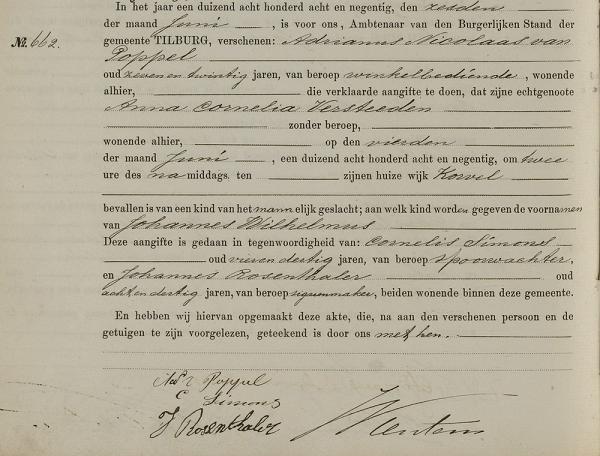 In het jaar een duizend acht honderd acht en negentig, den zesden
der maand Juni, is voor ons, Ambtenaar van den Burgerlijken Stand der
№. 662. gemeente TILBURG, verschenen: Adrianus Nicolaas van
Poppel
oud zeven en twintig jaren, van beroep winkelbediende, wonende
alhier, die verklaarde aangifte te doen, dat zijne echtgenoote
Anna Cornelia Versteeden
zonder beroep,
wonende alhier, op den vierden
der maand Juni, een duizend acht honderd acht en negentig, om twee
ure des na middags. ten zijnen huize wijk Korvel
bevallen is van een kind van het mannelijk geslacht; aan welk kind worden gegeven de voornamen
van Johannes Wilhelmus
Deze aangifte is gedaan in tegenwoordigheid van: Cornelis Simons
oud vier en dertig jaren, van beroep spoorwachter,
en Johannes Rosenthaler oud
acht en dertig jaren, van beroep sigarenmaker, beiden wonende binnen deze gemeente.
En hebben wij hiervan opgemaakt deze akte, die, na aan den verschenen persoon en de
getuigen te zijn voorgelezen, geteekend is door ons met hen.
Poppel
C Simons
J Rosenthaler